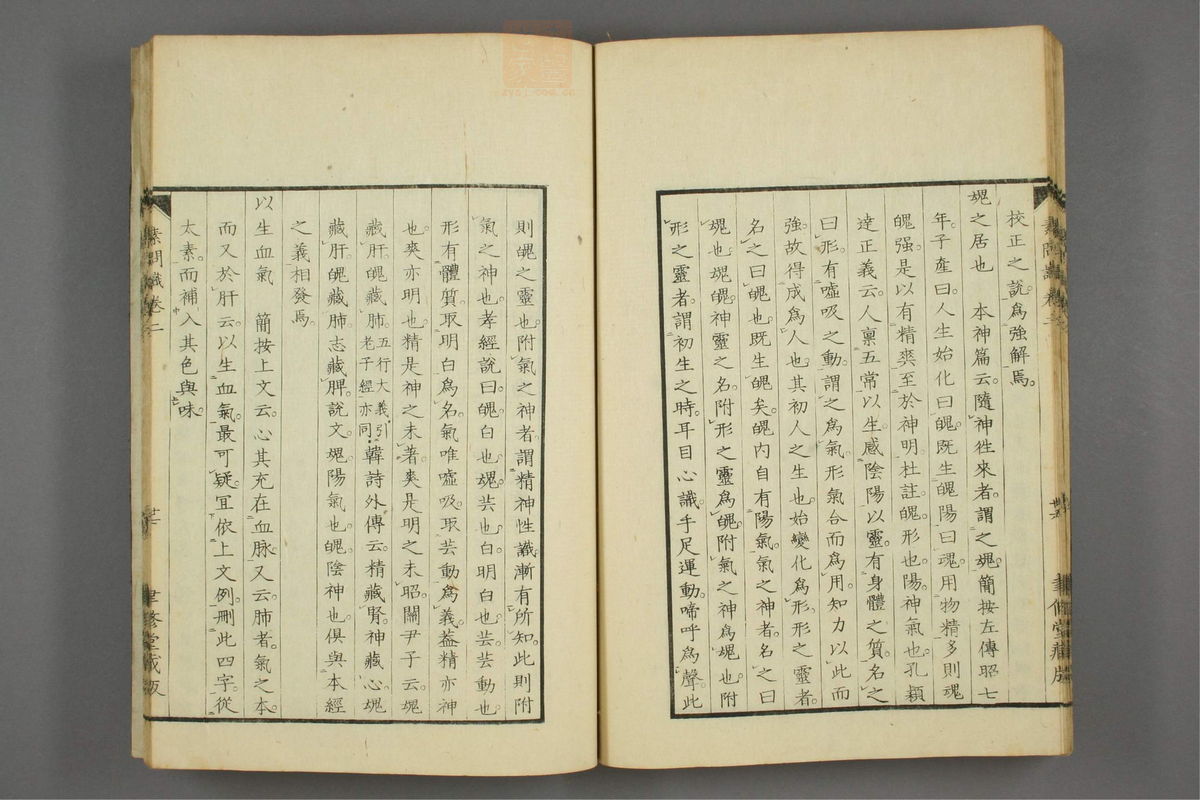 校正之說爲強解焉。
魂之居也　本神篇云。隨神徃來者。謂之魂。簡按左傳昭七
年。子產曰。人生始化曰魄。既生魄。陽曰魂。用物精多。則魂
魄强。是以有精爽。至於神明。杜註。魄。形也。陽。神氣也。孔穎
達正義云。人稟五常以生。感陰陽以靈。有身體之質。名之
曰形。有噓吸之動。謂之爲氣。形氣合而爲用。知力以此而
強。故得成爲人也。其初人之生也。始變化爲形。形之靈者。
名之曰魄也。既生魄矣。魄內自有陽氣。氣之神者。名之曰
魂也。魂魄神靈之名。附形之靈爲魄。附氣之神爲魂也。附
形之靈者。謂初生之時。耳目心識。手足運動。啼呼爲聲。此
則魄之靈也。附氣之神者。謂精神性識。漸有所知。此則附
氣之神也。孝經說曰。魄。白也。魂。芸也。白。明白也。芸。芸動也。
形有體質。取明白爲名。氣唯噓吸。取芸動爲義。葢精亦神
也。爽亦明也。精是神之未著。爽是明之未昭。關尹子云。魂
藏肝。魄藏肺。五行大義引老子經亦同。韓詩外傳云。精藏腎。神藏心。魂
藏肝。魄藏肺。志藏脾。說文。魂。陽氣也。魄。陰神也。俱與本經
之義相發焉。
以生血氣　簡按上文云。心其充在血脉。又云。肺者。氣之本。
而又於肝云。以生血氣。最可疑。冝依上文例。刪此四字。從
太素。而補入其色與味。
素問識卷二
廿
聿修堂藏版